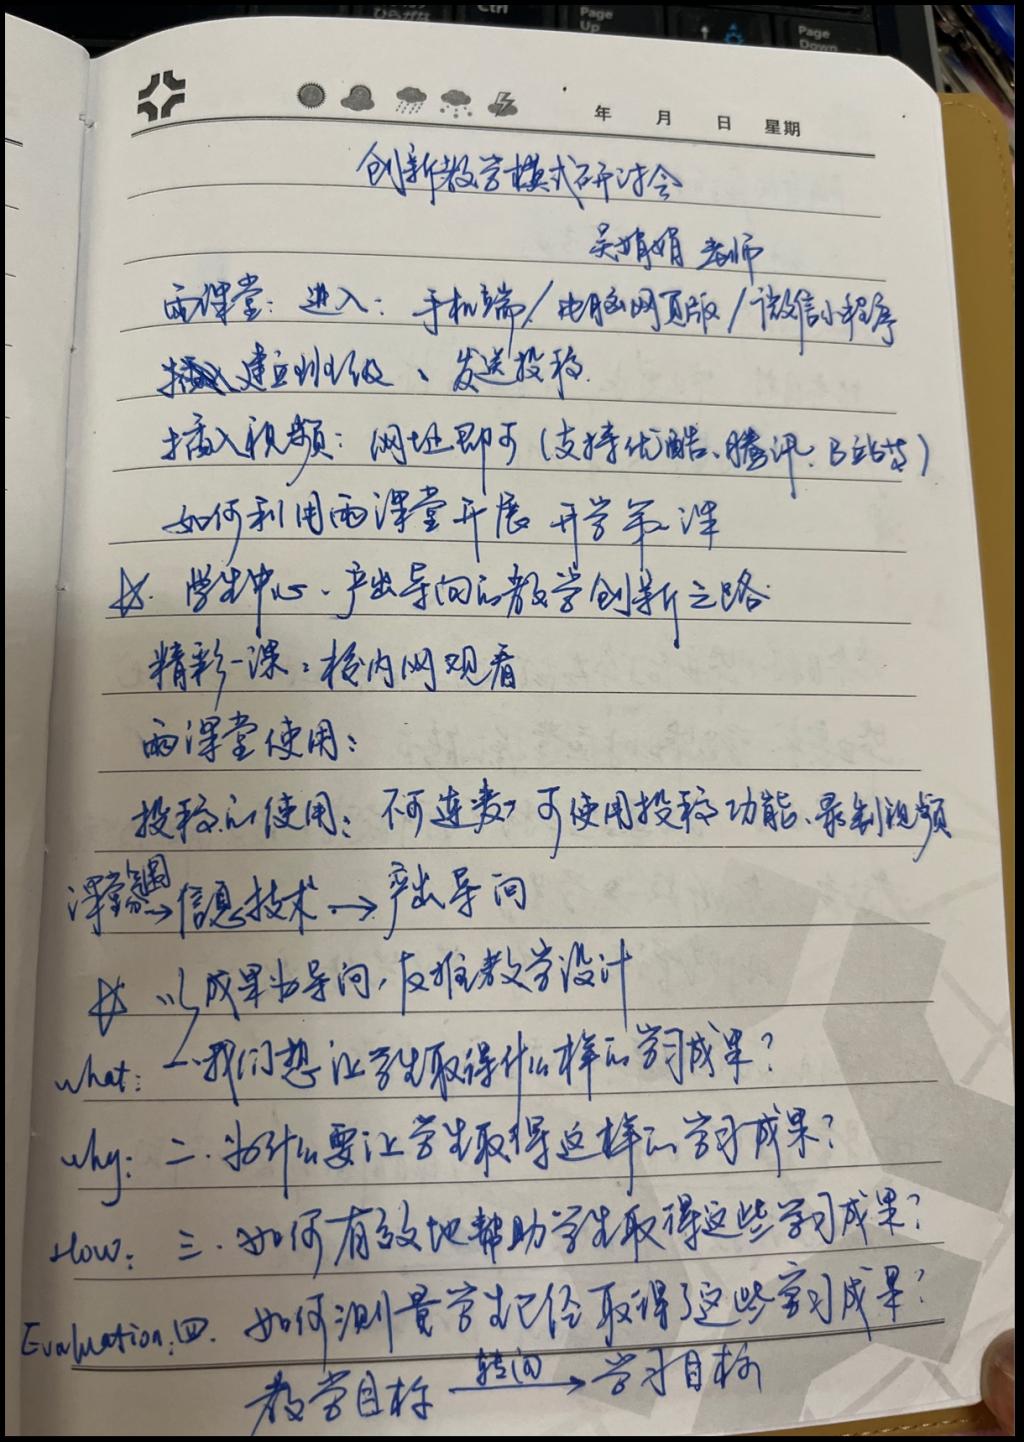 Ctrl
Page
Up
Page
Down
年 月 日 星期
创新教学模式研讨会
吴娟娟 老师
雨课堂: 进入: 手机端/电脑网页版/微信小程序
建立班级、发送投稿.
插入视频: 网址即可 (支持优酷、腾讯、B站等)
如何利用雨课堂开展 开学第一课
☆. 学生中心、产出导向的教学创新之路.
精彩一课: 校内网观看
雨课堂使用:
投稿的使用: 不可连麦, 可使用投稿功能、录制视频
课堂氛围→信息技术→产出导向
☆ 以成果为导向, 反推教学设计
what: 一. 我们想让学生取得什么样的学习成果?
why: 二. 为什么要让学生取得这样的学习成果?
How: 三. 如何有效地帮助学生取得这些学习成果?
Evaluation: 四. 如何测量学生已经取得了这些学习成果?
教学目标 转向→ 学习目标